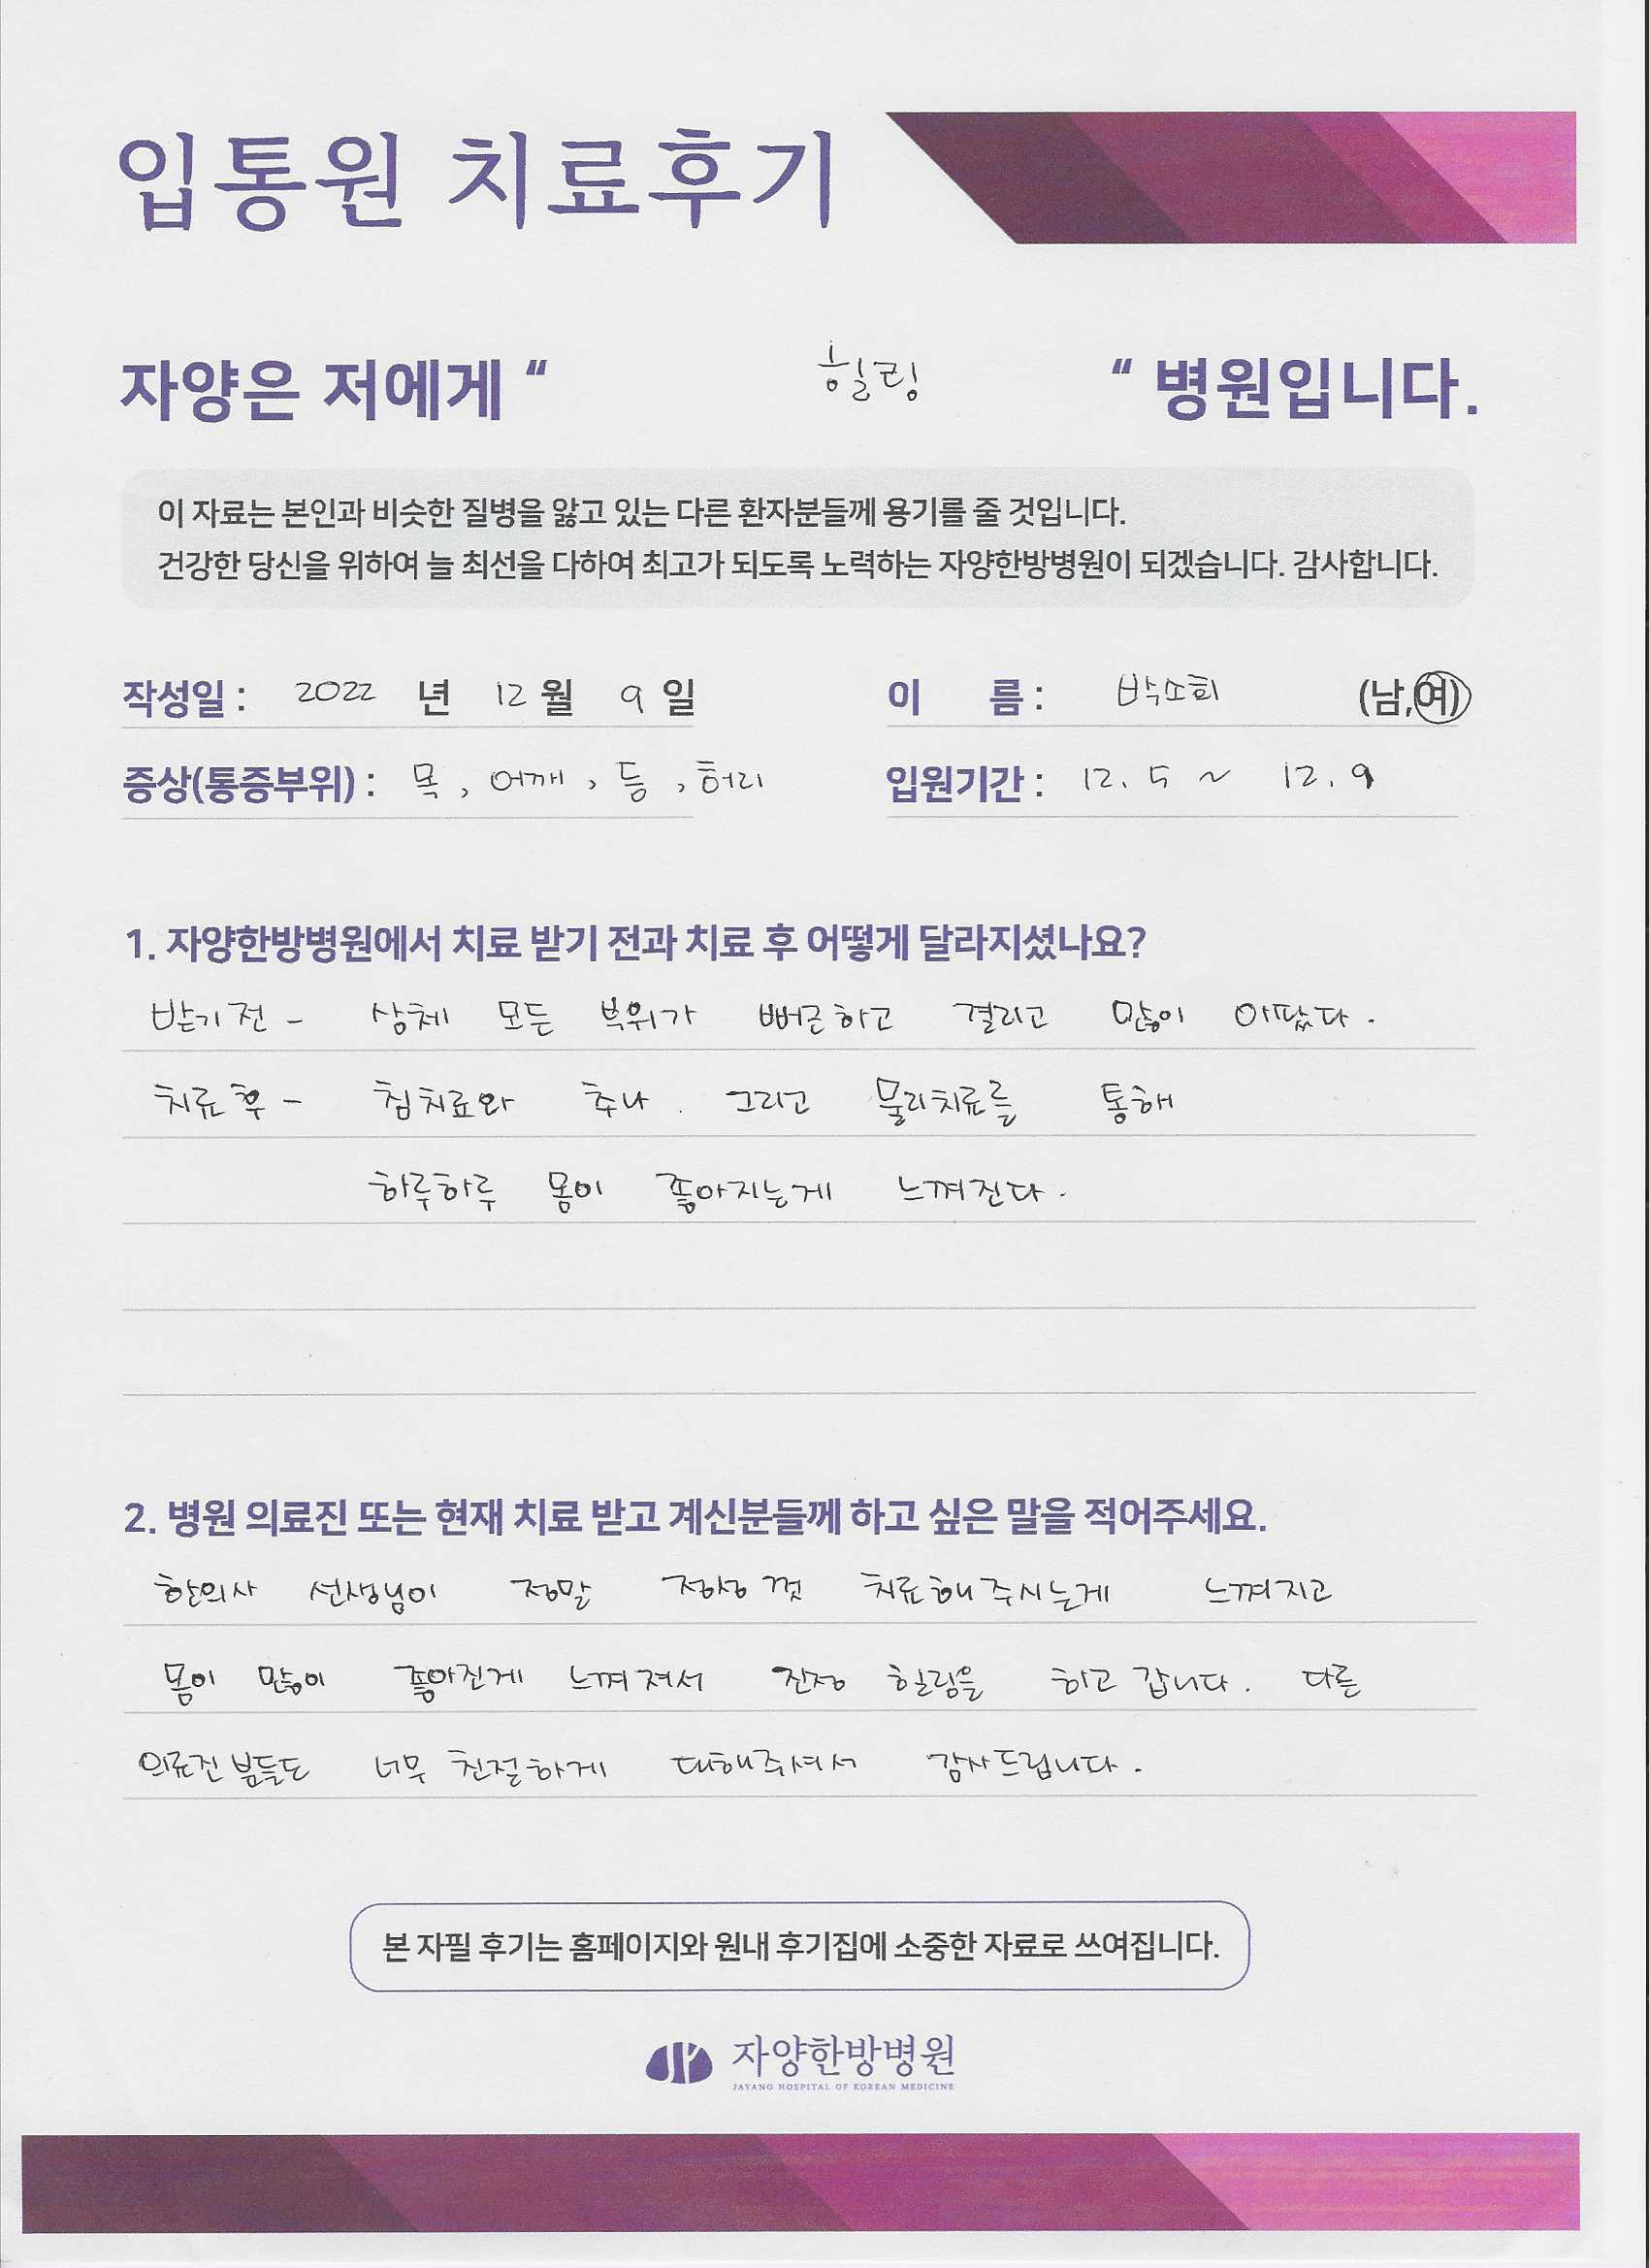 입통원 치료후기
자양은 저에게 “ 힐링 “ 병원입니다.
이 자료는 본인과 비슷한 질병을 앓고 있는 다른 환자분들께 용기를 줄 것입니다.
건강한 당신을 위하여 늘 최선을 다하여 최고가 되도록 노력하는 자양한방병원이 되겠습니다. 감사합니다.
작성일 : 2022 년 12 월 9 일 이 름 : 박소희 (남,여)
증상(통증부위) : 목, 어깨, 등, 허리 입원기간 : 12. 5 ~ 12. 9
1. 자양한방병원에서 치료 받기 전과 치료 후 어떻게 달라지셨나요?
받기 전 - 상체 모든 부위가 뻐근하고 결리고 많이 아팠다.
치료 후 - 침치료와 추나. 그리고 물리치료를 통해
하루하루 몸이 좋아지는게 느껴진다.
2. 병원 의료진 또는 현재 치료 받고 계신분들께 하고 싶은 말을 적어주세요.
한의사 선생님이 정말 정성껏 치료해 주시는게 느껴지고
몸이 많이 좋아진게 느껴져서 진정 힐링을 하고 갑니다. 다른
의료진 분들도 너무 친절하게 대해주셔서 감사드립니다.
본 자필 후기는 홈페이지와 원내 후기집에 소중한 자료로 쓰여집니다.
자양한방병원
JAYANG HOSPITAL OF KOREAN MEDICINE